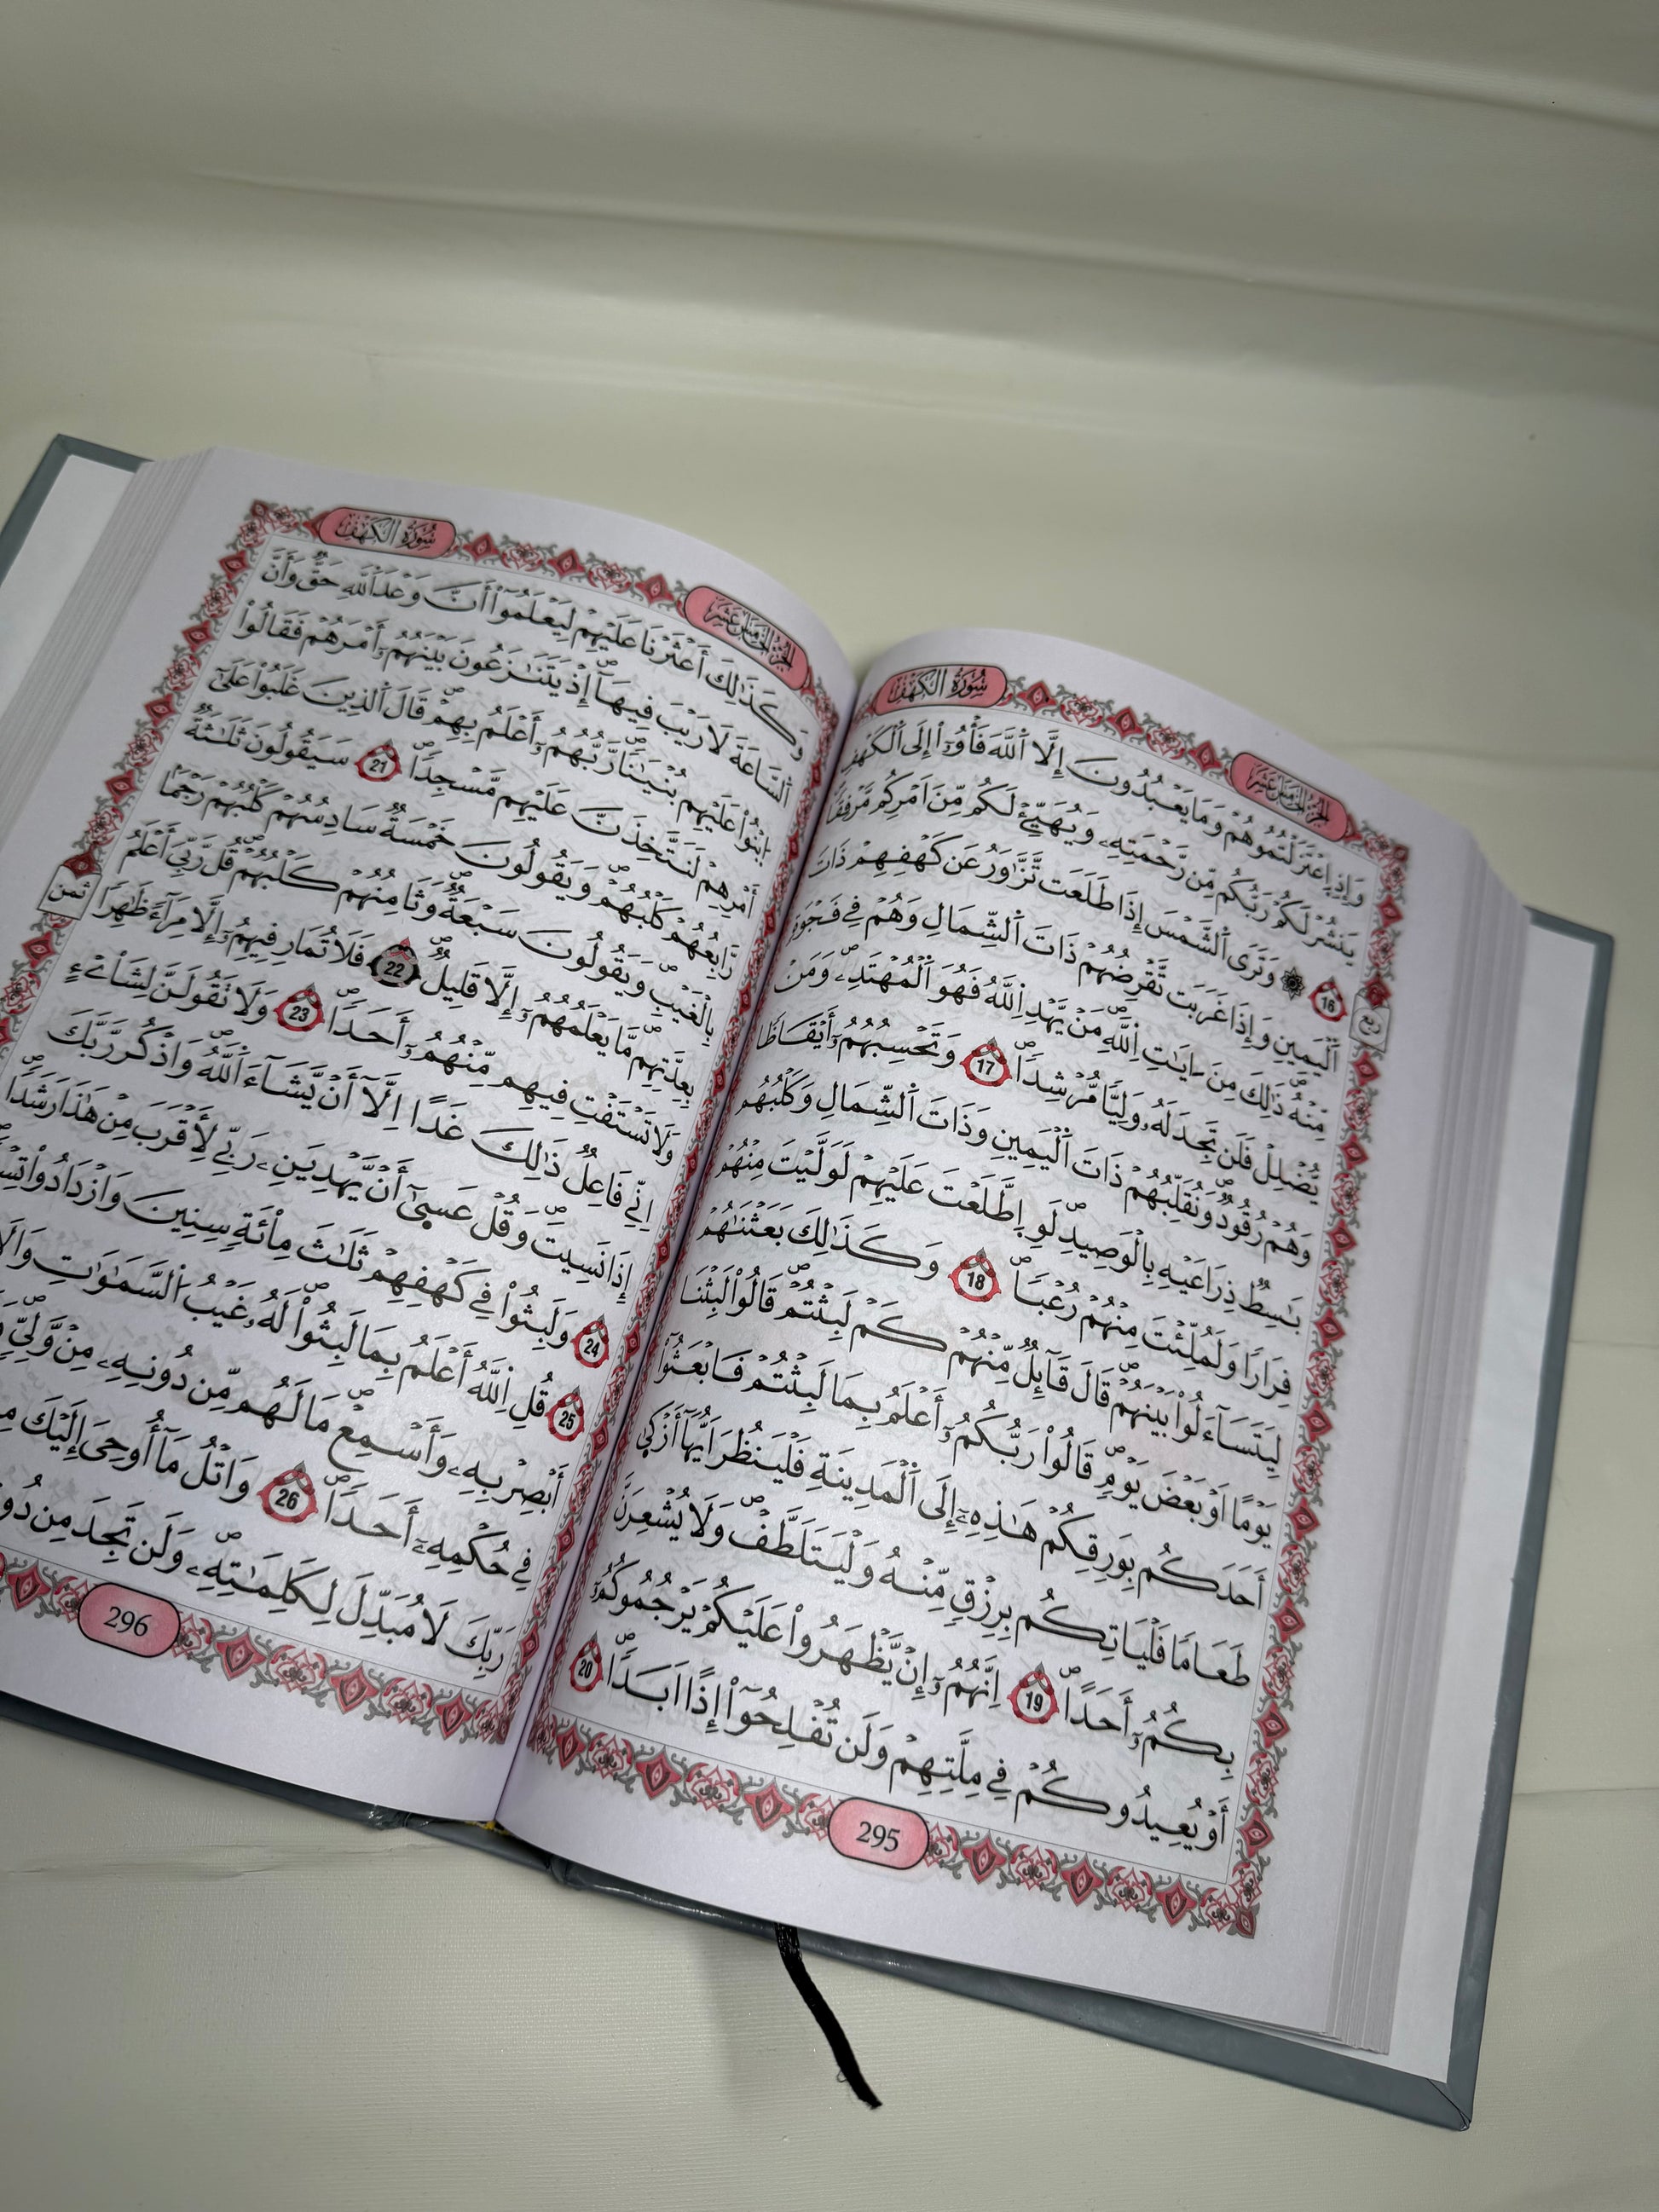 الجزء الخامس عشر
سُورَةُ الْكَهْفِ
وَإِذِ اِعْتَزَلْتُمُوهُمْ وَمَا يَعْبُدُونَ إِلَّا اَللَّهَ فَأْوُۥٓاْ إِلَى اَلْكَهْفِ
يَنشُرْ لَكُمْ رَبُّكُم مِّن رَّحْمَتِهِۦ وَيُهَيِّئْ لَكُم مِّنَ اَمْرِكُم مَّرْفِقًا
16 ۞ وَتَرَى اَلشَّمْسَ إِذَا طَلَعَت تَّزَّٰوَرُ عَن كَهْفِهِمْ ذَاتَ
ربع
اَلْيَمِينِ وَإِذَا غَرَبَت تَّقْرِضُهُمْ ذَاتَ اَلشِّمَالِ وَهُمْ فِي فَجْوَةٍ
مِّنْهُ ذَٰلِكَ مِنَ اٰيَٰتِ اِللَّهِ مَنْ يَّهْدِ اِللَّهُ فَهُوَ اَلْمُهْتَدِۦ وَمَنْ
يُّضْلِلْ فَلَن تَجِدَ لَهُۥ وَلِيًّا مُّرْشِدًا 17 وَتَحْسِبُهُمُۥٓ أَيْقَاظًا
وَهُمْ رُقُودٌ وَنُقَلِّبُهُمْ ذَاتَ اَلْيَمِينِ وَذَاتَ اَلشِّمَالِ وَكَلْبُهُم
بَٰسِطٌ ذِرَاعَيْهِ بِالْوَصِيدِ لَوِ اِطَّلَعْتَ عَلَيْهِمْ لَوَلَّيْتَ مِنْهُمْ
فِرَارًا وَلَمُلِّئْتَ مِنْهُمْ رُعْبًا 18 وَكَذَٰلِكَ بَعَثْنَٰهُمْ
لِيَتَسَآءَلُواْ بَيْنَهُمْ قَالَ قَآئِلٌ مِّنْهُمْ كَمْ لَبِثْتُمْ قَالُواْ لَبِثْنَا
يَوْمًا اَوْ بَعْضَ يَوْمٍ قَالُواْ رَبُّكُمُۥٓ أَعْلَمُ بِمَا لَبِثْتُمْ فَابْعَثُوٓاْ
أَحَدَكُم بِوَرِقِكُمْ هَٰذِهِۦٓ إِلَى اَلْمَدِينَةِ فَلْيَنظُرَ اَيُّهَآ أَزْكَىٰ
طَعَامًا فَلْيَاتِكُم بِرِزْقٍ مِّنْهُ وَلْيَتَلَطَّفْ وَلَا يُشْعِرَنَّ
بِكُمُۥٓ أَحَدًا 19 اِنَّهُمُۥٓ إِنْ يَّظْهَرُواْ عَلَيْكُمْ يَرْجُمُوكُمُۥٓ
أَوْ يُعِيدُوكُمْ فِي مِلَّتِهِمْ وَلَن تُفْلِحُوٓاْ إِذًا اَبَدًا 20
295
الجزء الخامس عشر
سُورَةُ الْكَهْفِ
وَكَذَٰلِكَ أَعْثَرْنَا عَلَيْهِمْ لِيَعْلَمُوٓاْ أَنَّ وَعْدَ اَللَّهِ حَقٌّ وَأَنَّ
اَلسَّاعَةَ لَا رَيْبَ فِيهَآ إِذْ يَتَنَٰزَعُونَ بَيْنَهُمُۥٓ أَمْرَهُمْ فَقَالُواْ
اِبْنُواْ عَلَيْهِم بُنْيَٰنًا رَّبُّهُمُۥٓ أَعْلَمُ بِهِمْ قَالَ اَلذِينَ غَلَبُواْ عَلَىٰٓ
أَمْرِهِمْ لَنَتَّخِذَنَّ عَلَيْهِم مَّسْجِدًا 21 سَيَقُولُونَ ثَلَٰثَةٌ
رَّابِعُهُمْ كَلْبُهُمْ وَيَقُولُونَ خَمْسَةٌ سَادِسُهُمْ كَلْبُهُمْ رَجْمًۢا
بِالْغَيْبِ وَيَقُولُونَ سَبْعَةٌ وَثَامِنُهُمْ كَلْبُهُمْ قُل رَّبِّيَ أَعْلَمُ
بِعِدَّتِهِم مَّا يَعْلَمُهُمُۥٓ إِلَّا قَلِيلٌ 22 فَلَا تُمَارِ فِيهِمُۥٓ إِلَّا مِرَآءً ظَٰهِرًا
ثمن
وَلَا تَسْتَفْتِ فِيهِم مِّنْهُمُۥٓ أَحَدًا 23 وَلَا تَقُولَنَّ لِشَاْىْءٍ
اِنِّي فَاعِلٌ ذَٰلِكَ غَدًا اِلَّآ أَنْ يَّشَآءَ اَللَّهُ وَاذْكُر رَّبَّكَ
إِذَا نَسِيتَ وَقُلْ عَسَىٰٓ أَنْ يَّهْدِيَنِۦ رَبِّي لِأَقْرَبَ مِنْ هَٰذَا رَشَدًا
24 وَلَبِثُواْ فِي كَهْفِهِمْ ثَلَٰثَ مِاْئَةٍ سِنِينَ وَازْدَادُواْ
25 قُلِ اِللَّهُ أَعْلَمُ بِمَا لَبِثُواْ لَهُۥ غَيْبُ اُلسَّمَٰوَٰتِ
أَبْصِرْ بِهِۦ وَأَسْمِعْ مَا لَهُم مِّن دُونِهِۦ مِنْ وَّلِيٍّ
فِي حُكْمِهِۦٓ أَحَدًا 26 وَاتْلُ مَآ أُوحِيَ إِلَيْكَ
رَبِّكَ لَا مُبَدِّلَ لِكَلِمَٰتِهِۦ وَلَن تَجِدَ مِن
296